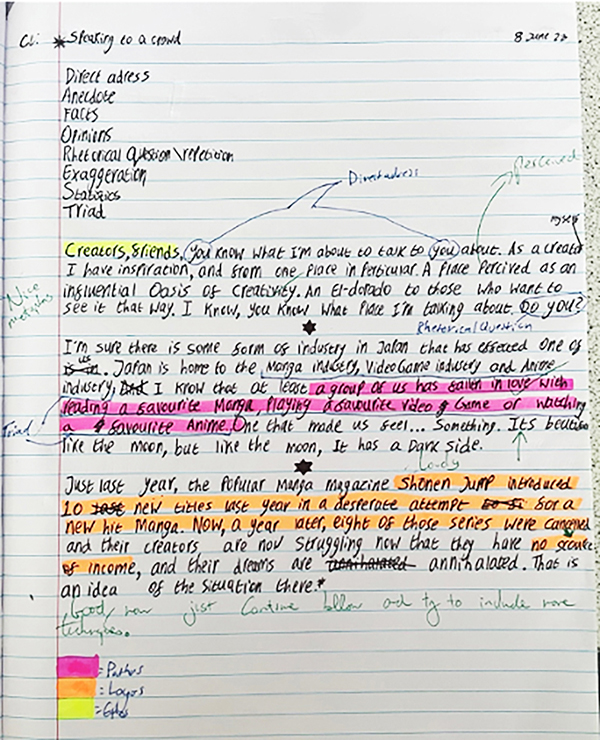 CL: *Speaking to a crowd 8 June 2
Direct adress
Anecdote
Facts
Opinions
Rhetorical Question\repetition
Exaggeration
Statistics
Triad
Direct adress
Perceived
myself
Creators, friends, you know what I'm about to talk to you about. As a creator
I have inspiration, and from one place in Perticular. A Place Percived as an
influential Oasis of Creativity. An El-dorado to those who want to
see it that way. I know, you know what Place I'm talking about. Do you?
Nice
metaphor
Rhetorical Question
I'm sure there is some form of industry in Japan that has effected one of
us. Japan is home to the Manga industry, Video Game industry and Anime
industry, I know that at least a group of us has fallen in love with
reading a favourite Manga, Playing a favourite Video Game or watching
a favourite Anime. One that made us feel... Something. It's beautiful
Triad
like the moon, but like the moon, It has a Dark side.
Lovely
Just last year, the Popular Manga magazine Shonen Jump introduced
10 new titles last year in a desperate attempt for a
new hit Manga. Now, a year later, eight of those series were canceled
and their creators are now struggling now that they have no source
of income, and their dreams are annihalated. That is
an idea of the Situation there.*
Good, now just continue and try to include more
techniques.
= Pathos
= Logos
= Ethos